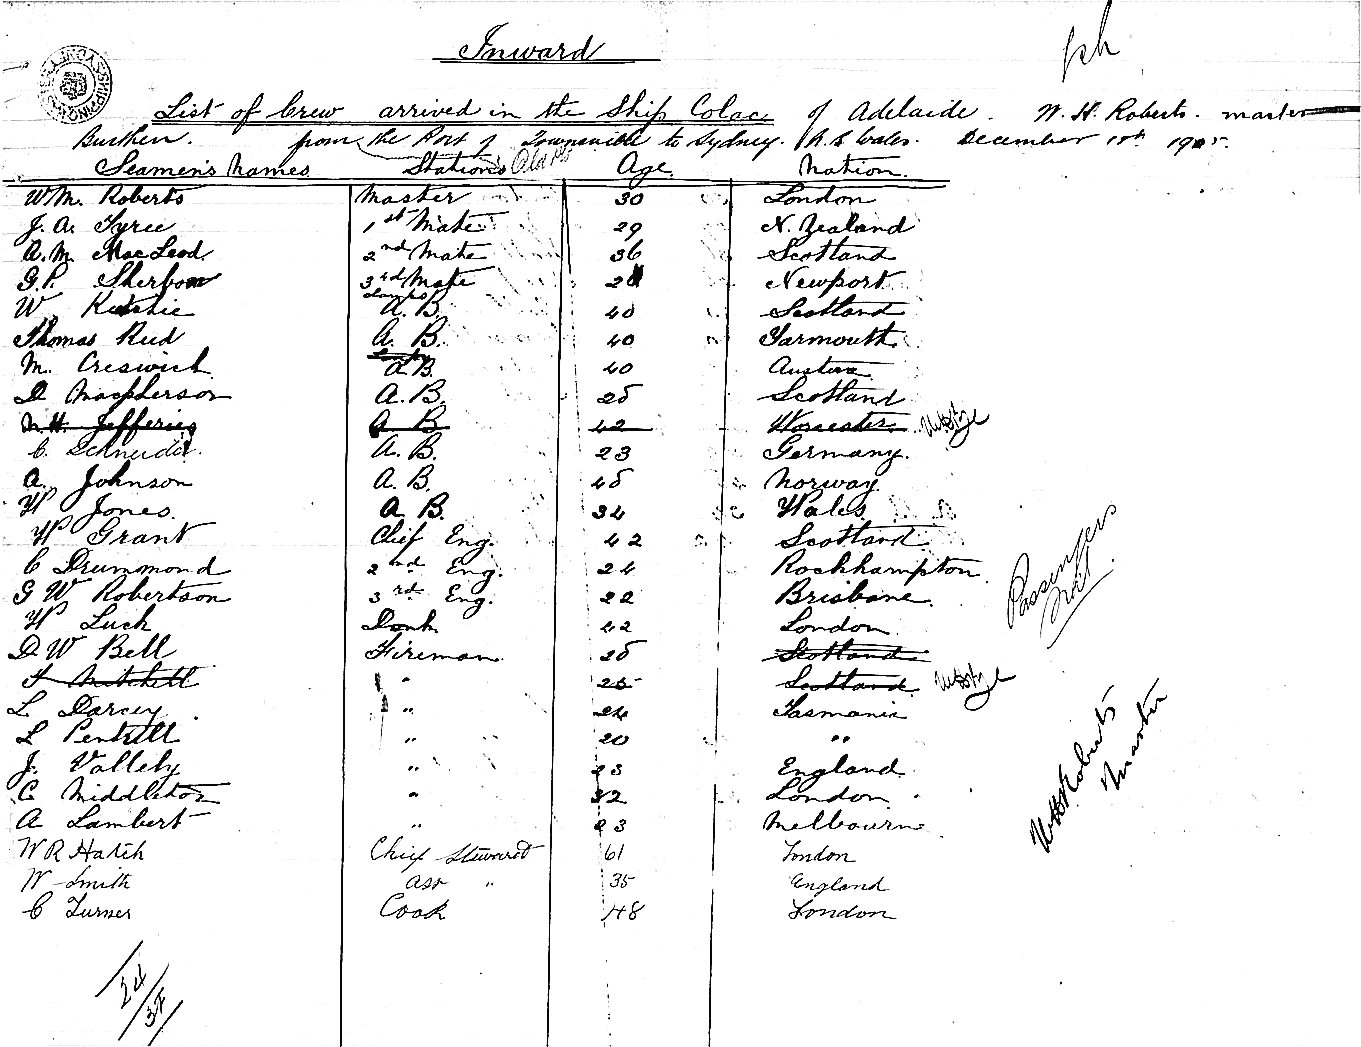 Inward
List of Crew arrived in the Ship Colac of Adelaide. W. H. Roberts. master
Burthen. from the Port of Townsville to Sydney. N. S. Wales. December 10th 1905.
Seamen's Names Stations Age Nation.
Wm. Roberts Master 30 London
J. A. Tyree 1st Mate 29 N. Zealand
A. M. MacLeod 2nd Mate 36 Scotland
G. P. Sherbon 3rd Mate Newport
W. Lamps A. B. 40 Scotland
Thomas Reid A. B. 40 Yarmouth
M. Creswick A B. 40
D Macpherson A. B. 25 Scotland
Jefferies A B 42 Worcester
C. Schneider. A. B. 23 Germany.
A. Johnson A. B. 45 Norway
W Jones. A B. 34 Wales
W Grant Chief Eng. 42 Scotland
C Drummond 2nd Eng. 24 Rockhampton.
G W Robertson 3rd Eng. 22 Brisbane
W Luck Donk 42 London
D. W Bell Fireman 25 Scotland
Mitchell " 25 Scotland
L. Darcey " 24 Tasmania
L " 20 "
J. Vallely " 23 England
C Middleton " 32 London
A Lambert " 23 Melbourne
W R Hatch Chief Steward 61 London
W Smith Asst " 35 England
C Turner Cook 48 London
Passengers
Nil
WH Roberts
Master
24